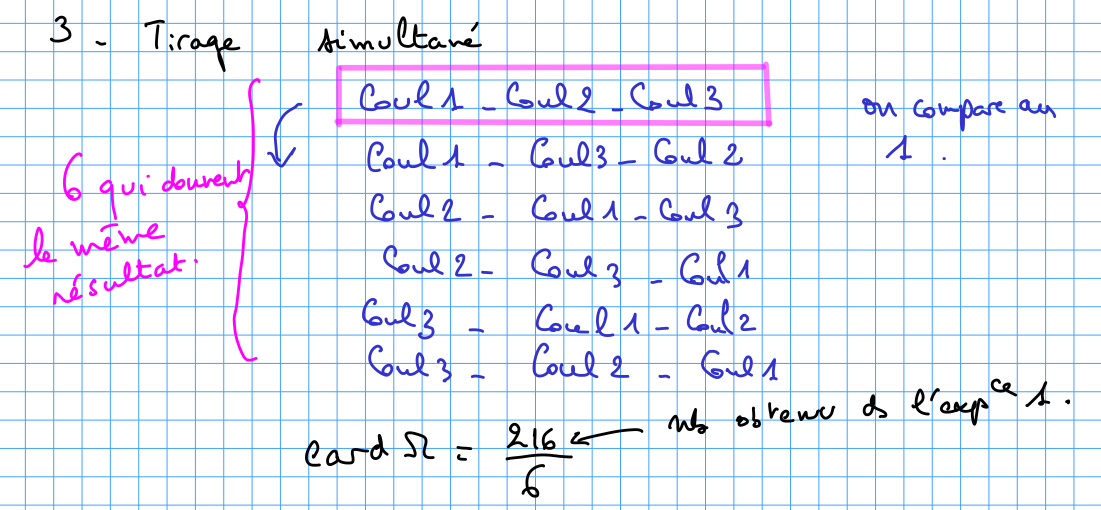 3 - Tirage simultané
Coul 1 - Coul 2 - Coul 3
on compare au
1.
Coul 1 - Coul 3 - Coul 2
Coul 2 - Coul 1 - Coul 3
Coul 2 - Coul 3 - Coul 1
Coul 3 - Coul 1 - Coul 2
Coul 3 - Coul 2 - Coul 1
6 qui donnent
le même
résultat.
card Ω = 216/6
nb obtenu ds l'exp^ce 1.